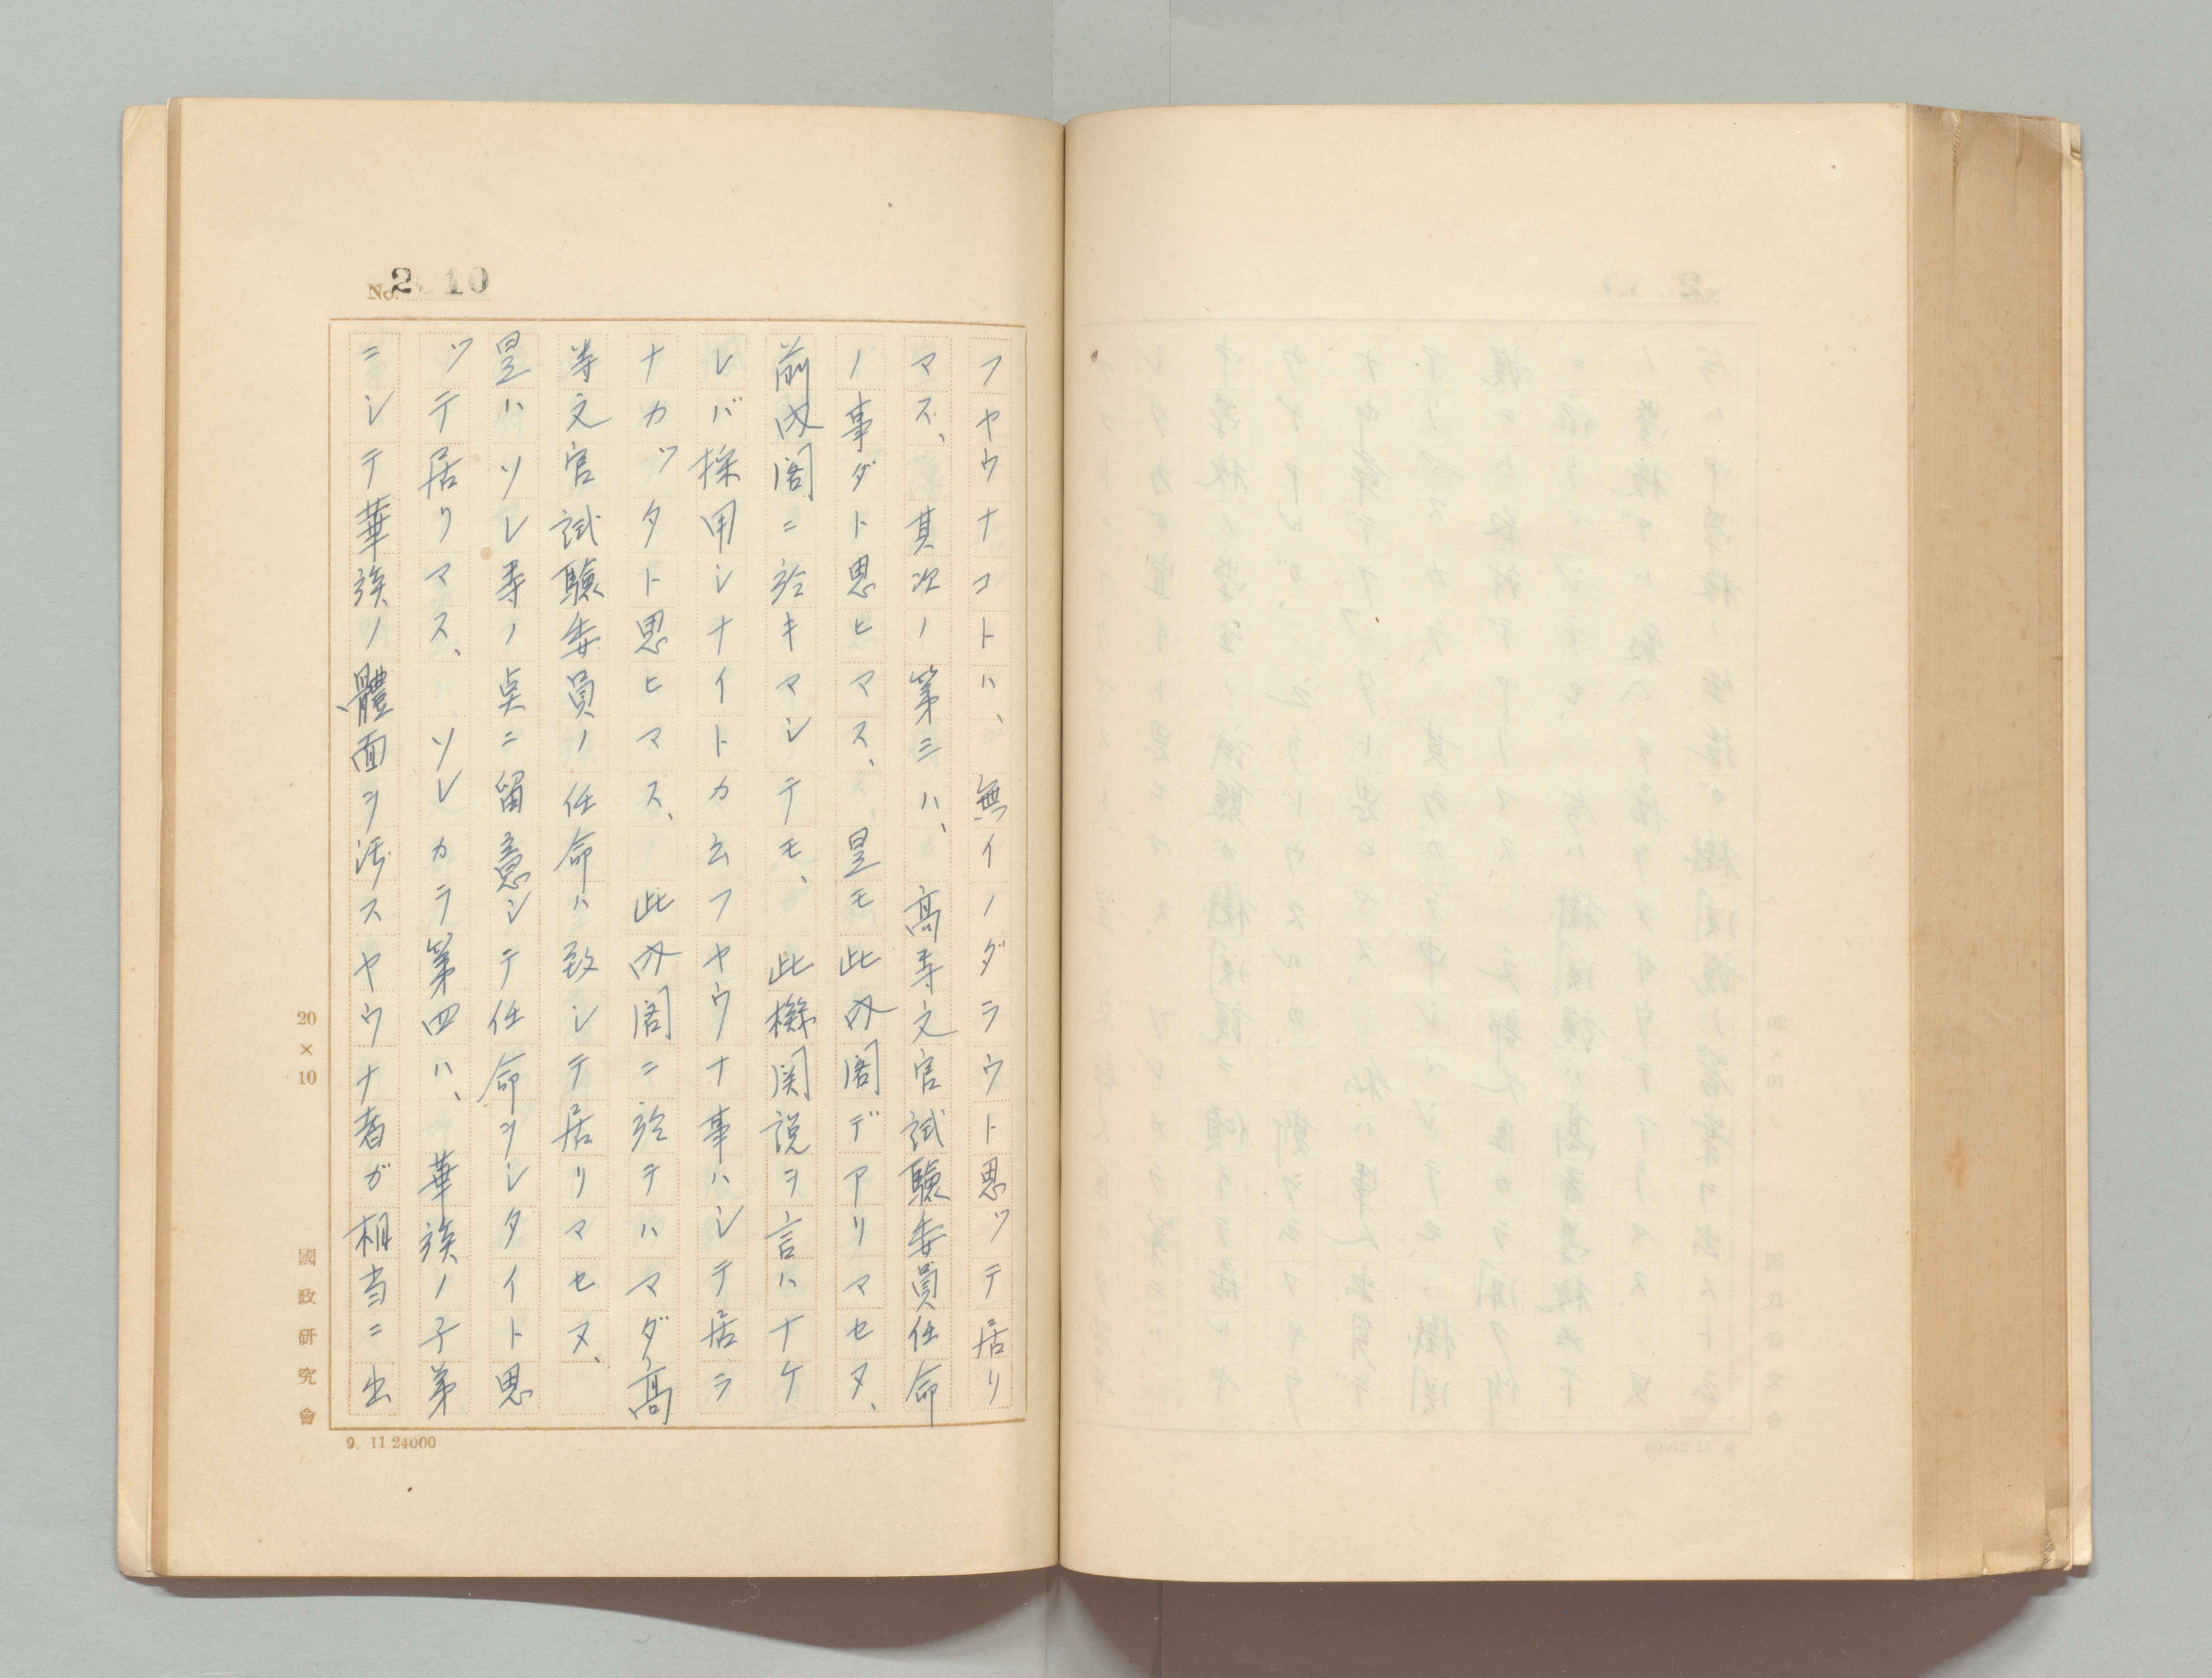 No. 2 10
フヤウナコトハ、無イノダラウト思ツテ居リ
マス、其次ノ第三ハ、高等文官試験委員任命
ノ事ダト思ヒマス、是モ此内閣デアリマセヌ、
前内閣ニ於キマシテモ、此機関説ヲ言ハナケ
レバ採用シナイトカ云フヤウナ事ハシテ居ラ
ナカツタト思ヒマス、此内閣ニ於テハマダ高
等文官試験委員ノ任命ハ致シテ居リマセヌ、
是ハソレ等ノ点ニ留意シテ任命ヲシタイト思
ツテ居リマス、ソレカラ第四ハ、華族ノ子弟
ニシテ華族ノ體面ヲ汚スヤウナ者ガ相当ニ出
20×10
國政研究會
9. 11.24000